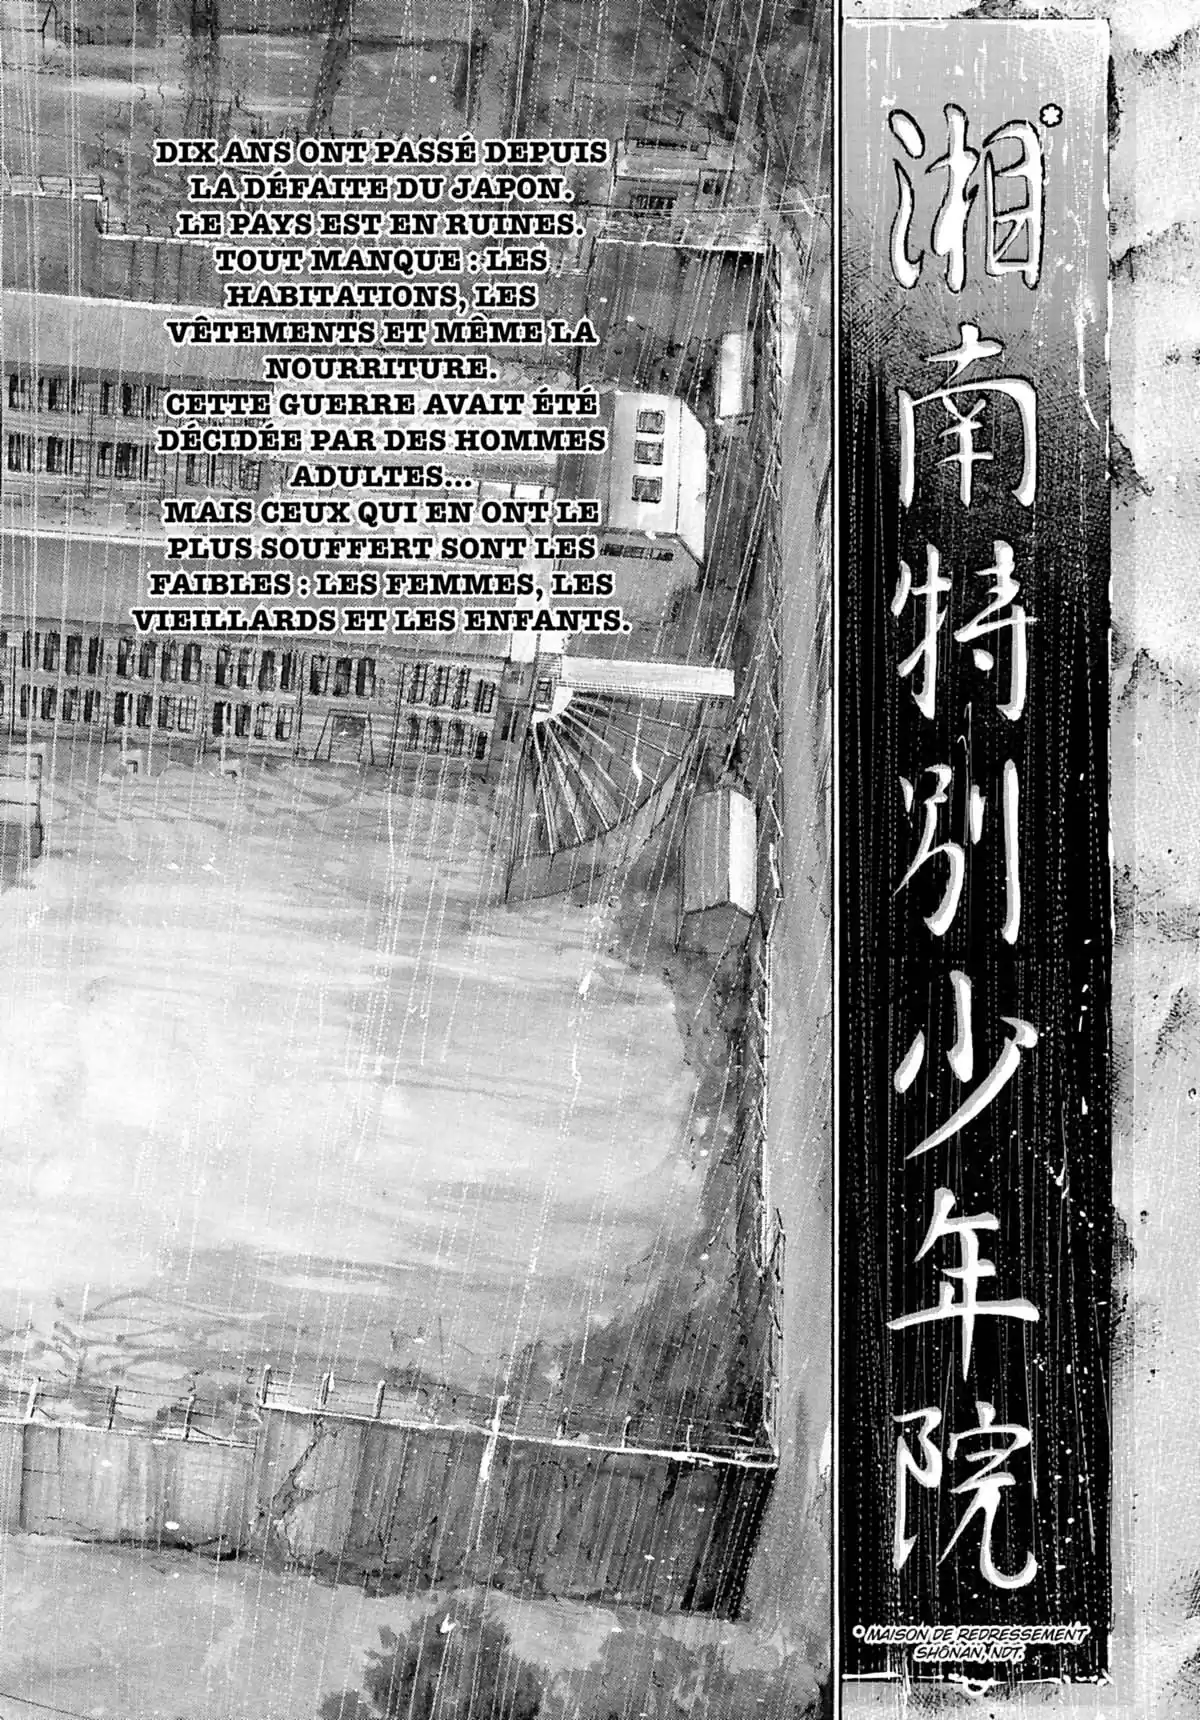 DIX ANS ONT PASSÉ DEPUIS
LA DÉFAITE DU JAPON.
LE PAYS EST EN RUINES.
TOUT MANQUE : LES
HABITATIONS, LES
VÊTEMENTS ET MÊME LA
NOURRITURE.
CETTE GUERRE AVAIT ÉTÉ
DÉCIDÉE PAR DES HOMMES
ADULTES...
MAIS CEUX QUI EN ONT LE
PLUS SOUFFERT SONT LES
FAIBLES : LES FEMMES, LES
VIEILLARDS ET LES ENFANTS.
湘南特別少年院*
*MAISON DE REDRESSEMENT
SHÔNAN, NDT.